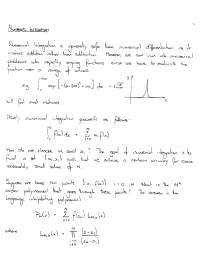 NUMERICAL INTEGRATION
Numerical integration is generally safer than numerical differentiation as it
involves addition rather than subtraction. However, we can run into numerical
problems with rapidly varying functions since we have to evaluate the
function over a range of values.
eg
will fail most methods.
numerical integration proceeds as follows:
How do we choose w_i and x_i? The goal of numerical integration is to
find a set {w_i, x_i} such that we achieve a certain accuracy for some
reasonably small value of n.
Suppose we have n+1 points (x_i, f(x_i)) i = 0,...,n. What is the Nth
order polynomial that goes through these points? The answer is the
Lagrange interpolating polynomial
where